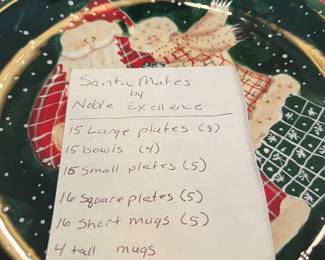 Santa Mates
by
Noble Excellence
15 Large plates (8)
15 bowls (4)
15 Small plates (5)
16 Square plates (5)
16 Short mugs (5)
4 tall mugs